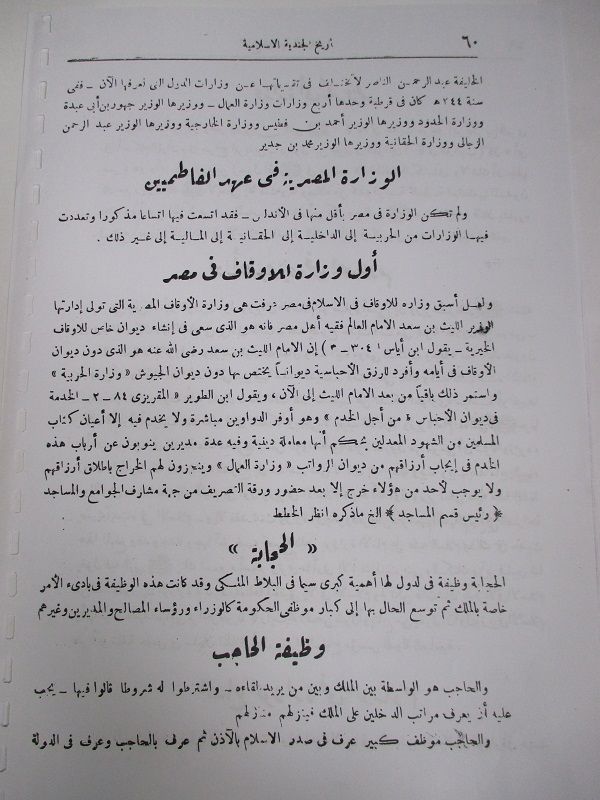 ٦٠
تاريخ الجندية الاسلامية
الخليفة عبد الرحمن الناصر لاتختلف فى تقسيماتها عن وزارات الدول التى نعرفها الآن ــ ففى
سنة ٢٤٤ه كان فى قرطبة وحدها أربع وزارات وزارة العمال ــ ووزيرها الوزير جهور بن أبى عبدة
ووزارة الحدود ووزيرها الوزير أحمد بن فطيس ووزارة الخارجية ووزيرها الوزير عبد الرحمن
الزجالى ووزارة الحقانية ووزيرها الوزير محمد بن جدير
الوزارة المصرية فى عهد الفاطميين
ولم تكن الوزارة فى مصر بأقل منها فى الأندلس ــ فقد اتسعت فيها اتساعا مذكورا وتعددت
فيها الوزارات من الحربية إلى الداخلية إلى الحقانية إلى المالية إلى غير ذلك .
أول وزارة للاوقاف فى مصر
ولعل أسبق وزاره للاوقاف فى الاسلام فى مصر عرفت هى وزارة الأوقاف المصرية التى تولى إدارتها
الوزير الليث بن سعد الامام العالم فقيه أهل مصر فانه هو الذى سعى فى إنشاء ديوان خاص للاوقاف
الخيرية ــ يقول ابن أياس ( ٣٠٤ ــ ٣ ) إن الامام الليث بن سعد رضى الله عنه هو الذى دون ديوان
الأوقاف فى أيامه وأفرد للرزق الأحباسية ديوانا يختص بها دون ديوان الجيوش « وزارة الحربية »
واستمر ذلك باقيا من بعد الامام الليث إلى الآن ، ويقول ابن الطوير « المقريزى ٨٤ ــ ٢ ــ الخدمة
فى ديوان الأحباس ة من أجل الخدم » وهو أوفر الدواوين مباشرة ولا يخدم فيه إلا أعيان كتاب
المسلمين من الشهود المعدلين بحكم أنها معاملة دينية وفيه عدة مديرين ينوبون عن أرباب هذه
الخدم فى إيجاب أرزاقهم من ديوان الرواتب « وزارة العمال » وينجزون لهم الخراج باطلاق أرزاقهم
ولا يوجب لأحد من هؤلاء خرج إلا بعد حضور ورقة التعريف من جهة مشارف الجوامع والمساجد
﴿ رئيس قسم المساجد ﴾ الخ ماذكره انظر الخطط
« الحجابة »
الحجابة وظيفة فى لدول لها أهمية كبرى سيما فى البلاط الملكى وقد كانت هذه الوظيفة فى بادىء الأمر
خاصة بالملك ثم توسع الحال بها إلى كبار موظفى الحكومة كالوزراء ورؤساء المصالح والمديرين وغيرهم
وظيفة الحاجب
والحاجب هو الواسطة بين الملك وبين من يريد لقاءه ــ واشترطوا له شروطا قالوا فيها ــ يجب
عليه أن يعرف مراتب الداخلين على الملك فينزلهم منازلهم
والحاجب موظف كبير عرف فى صدر الاسلام بالآذن ثم عرف بالحاجب وعرف فى الدولة